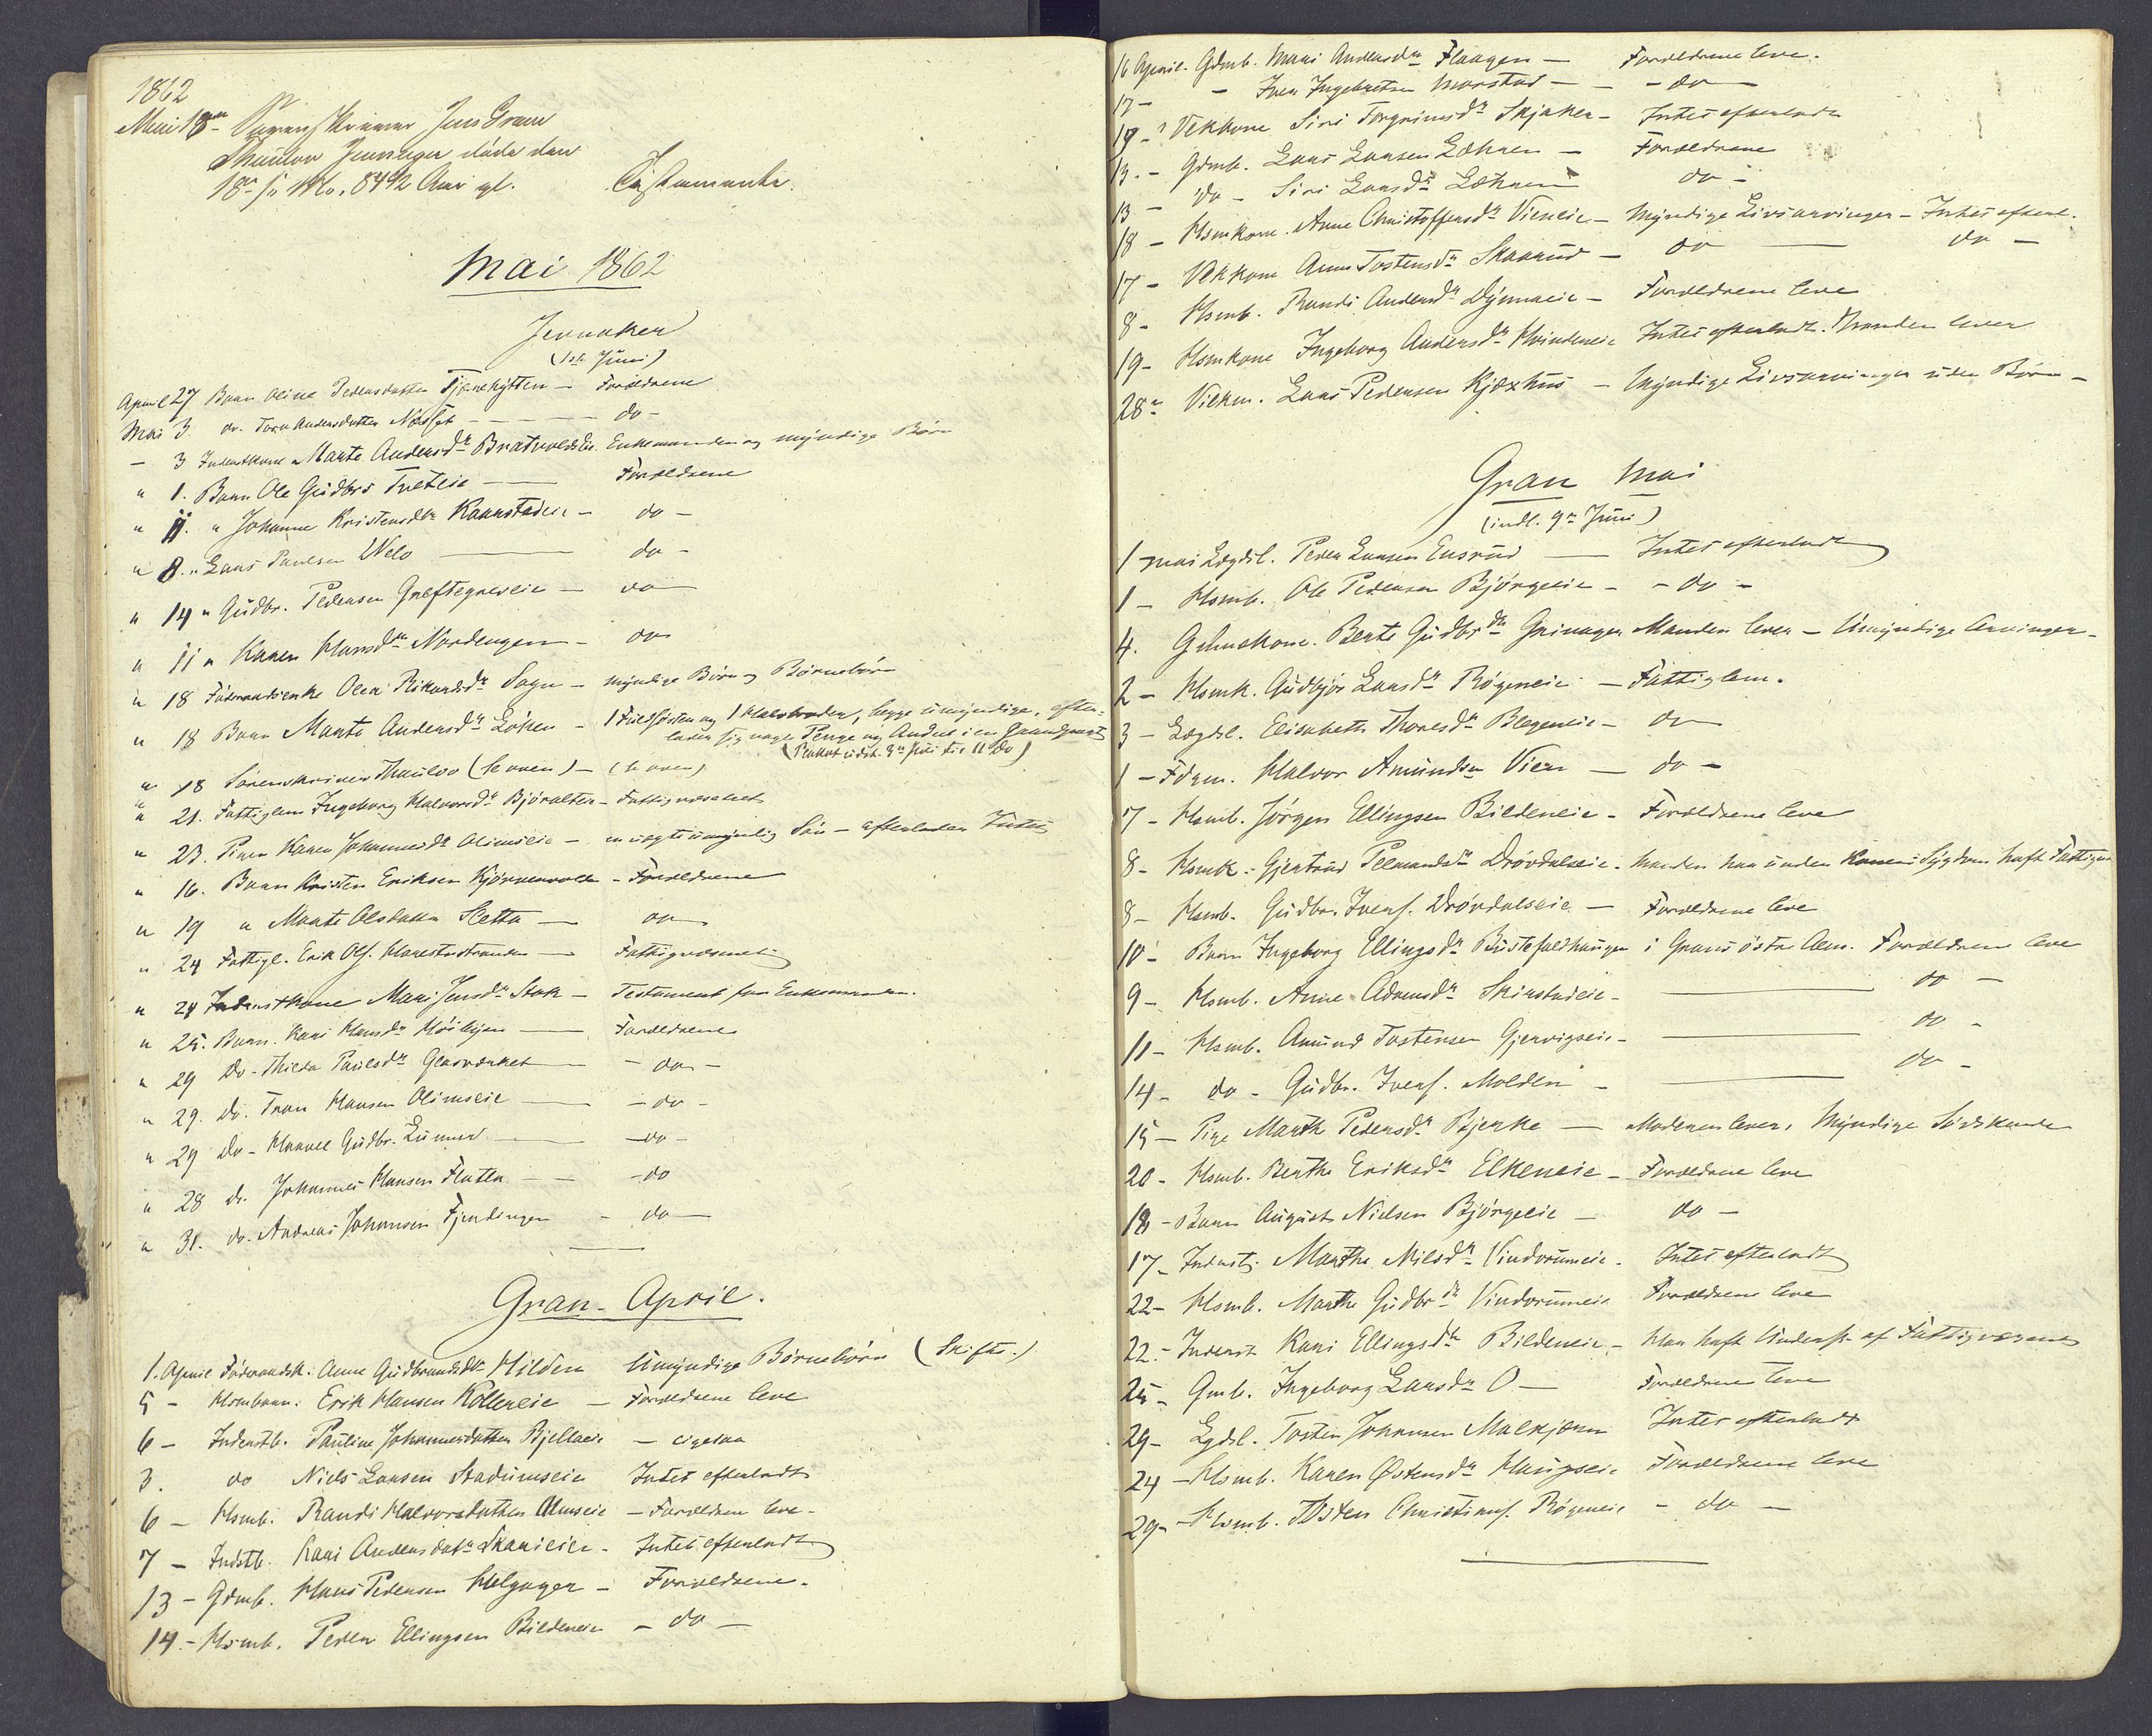 1862
Mai 18de Sorenskriver Jens Gram
Thaulow Jevnaker døde den
18de ds Kl. 8 1/2 Aar gl. Testamente.
Mai 1862
Jevnaker
(indk. Juni)
April 27 Barn Oline Pedersdatter Tjærehytten — Forældrene
Mai 3 do. Torn Andersdatter Næsset — do -
- 3 Inderstkone Marte Andersdr Bratvoldseie Enkemanden og myndige Børn
" 1. Barn Ole Gudbrs Tveteie — Forældrene
" 11. " Johanne Kristensdtr Raanstadeie - do -
" 8. " Lars Paulsen Velo — do -
" 14 " Gudbr. Pedersen Greftegreveie — do
" 11 " Karen Hansdtr Nordengen - do
" 18 Føderaadsenke Olea Rikardsdr Sogn - myndige Børn og Børnebørn
" 18 Barn Marte Andersdr Løken - 1 Fuldsøsten og 1 Halvbroder, begge umyndige, efter-
lader sig nogle Penge og Andel i en Grandpart
(Berkot udst. 3de Juli til 11 Do)
" 18 Sorenskriver Thaulow (se oven) - (se oven)
" 21. Fattiglem Ingeborg Halvorsdr Bjøralten - Fattigvæsenet
" 23. Pigen Karen Johannesdr Olimseie - en uægte umyndig Søn - efterlader Intet
" 16. Barn Kristen Eriksen Kjørvenvolden - Forældrene
" 19 " Marte Olsdatter Sletta — do
" 24 Fattigl. Erik Ols. Harestustranden — Fattigvæsenet
" 24 Inderstkone Mari Jensdr Stok - Testament for Enkemanden.
" 25. Barn. Kari Hansdr Høibyen — Forældrene
" 29 Do - Thilda Paulsdr Glasværket — - do -
" 29. Do. Tron Hansen Olimseie — - do -
" 29 Do - Harald Gudbr. Lunner — - do -
" 28 do Johannes Hansen Flaten — - do
" 31. do. Andreas Johansen Fjeldingen - do —
Gran - April.
1. April Føderaadsk. Anne Gudbrandsdtr Hilden Umyndige Børnebørn (Skifte.)
5 - Hsmbarn. Erik Hansen Kolleneie — Forældrene leve
6 - Inderstb. Pauline Johannesdatter Bjellaeie — ligesaa
3. do Niels Larsen Stadumseie Intet efterladt
6 - Hsmb. Randi Halvorsdatter Almseie — Forældren leve -
7 - Indstb. Kari Andersdatr Skarieie - Intet efterladt
13 - Gdmb. Hans Pedersen Helgager - Forældrene -
14. - Hsmb. Peder Ellingsen Bildeneie - do —
16 April. Gdmb. Mari Andersdr Flaagen — Forældrene leve.
17 - - Iver Ingebretsen Morstad — - do -
19 - Vekkone Siri Torgrimsdr Skjaker - Intet efterladt
13. - Gdmb. Lars Larsen Læhren — Forældrene
13 - do - Siri Larsdr Læhren do -
18 - Hsmkone. Anne Christoffersdr Vieneie - Myndige Livsarvinger - Intet efterl.
17 - Vekkone Anne Tostensdr Skaarud - do — do -
8 - Hsmb. Randi Andersdr Dynnaeie - Forældrene leve
19 - Hsmkone Ingeborg Andersdr Hvindeneie Intet efterladt. Manden lever
28 - Viekm. Lars Pedersen Kjøxhus - Myndige Livsarvinger uden Børn -
Gran Mai
(indl. 9de Juni)
1 - mai Lægdsl. Peder Larsen Ensrud — Intet efterladt
1 - Hsmb. Ole Pedersen Bjørgeeie - - do -
4. Gdmakone. Berte Gudbrdtr Grinager Manden lever - Umyndige Arvinger -
2 - Hsmk. Gudbjør Larsdr Røgeneie - Fattiglem.
3 - Lægdsl. Elisabeth Thorsdr Blegeneie - do
1 - Fdrm. Halvor Amundsn Vien — do -
7 - Hsmb. Jørgen Ellingsen Bildeneie - Forældrene leve
8 - Hsmk. - Gjertrud Peemandsdr Drøvdalseie - Manden har under Konens Sygdom haft Fattigun
8 - Hsmb. Gudbr. Ivers. Drøvdalseie — Forældrene leve
10 - Barn Ingeborg Ellingsdr Bustefaldhaugen i Grans østre Alm. Forældren leve
9 - Hsmb. Anne Adamsdr Skirstadeie - — do -
11 - Hsmb. Amund Tostensen Gjervigseie - — do -
14 - do - Gudbr. Ivers. Molden - — do -
15 - Pige Marth Pedersdr Bjerke — Moderen lever, Myndige Sødskende
20 - Hsmb. Berthe Eriksdr Elkeneie - Forældrene leve
18 - Barn August Nielsen Bjørgeeie — do -
17 - Inderstj. Marthe Nilsdr Vindorumeie. Intet efterladt
22 - Hsmb. Marthe Gudbrdr Vindorumeie Forældrene leve
22. - Inderst Kari Ellingsdr Bildeneie - Har haft Underst. af Fattigvæsenet
25 - Gmb. Ingeborg Larsdr O — Forældrene leve
29 - Lgdsl. Tosten Johannsen Malkjærn Intet efterladt
24 - Hsmb. Karen Østensdr Haugseie Forældrene leve
29 - Hsmb. Tosten Christians. Røgeneie - do -